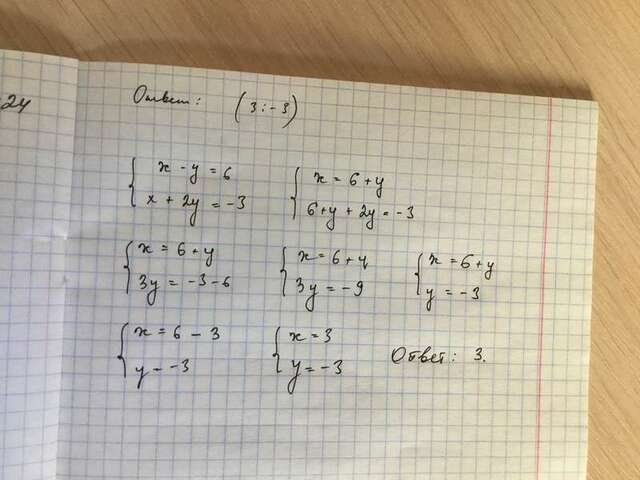 24
Ответ: (3:-3)
{ x - y = 6
x + 2y = -3
{ x = 6 + y
6 + y + 2y = -3
{ x = 6 + y
3y = -3 - 6
{ x = 6 + y
3y = -9
{ x = 6 + y
y = -3
{ x = 6 - 3
y = -3
{ x = 3
y = -3
Ответ: 3.